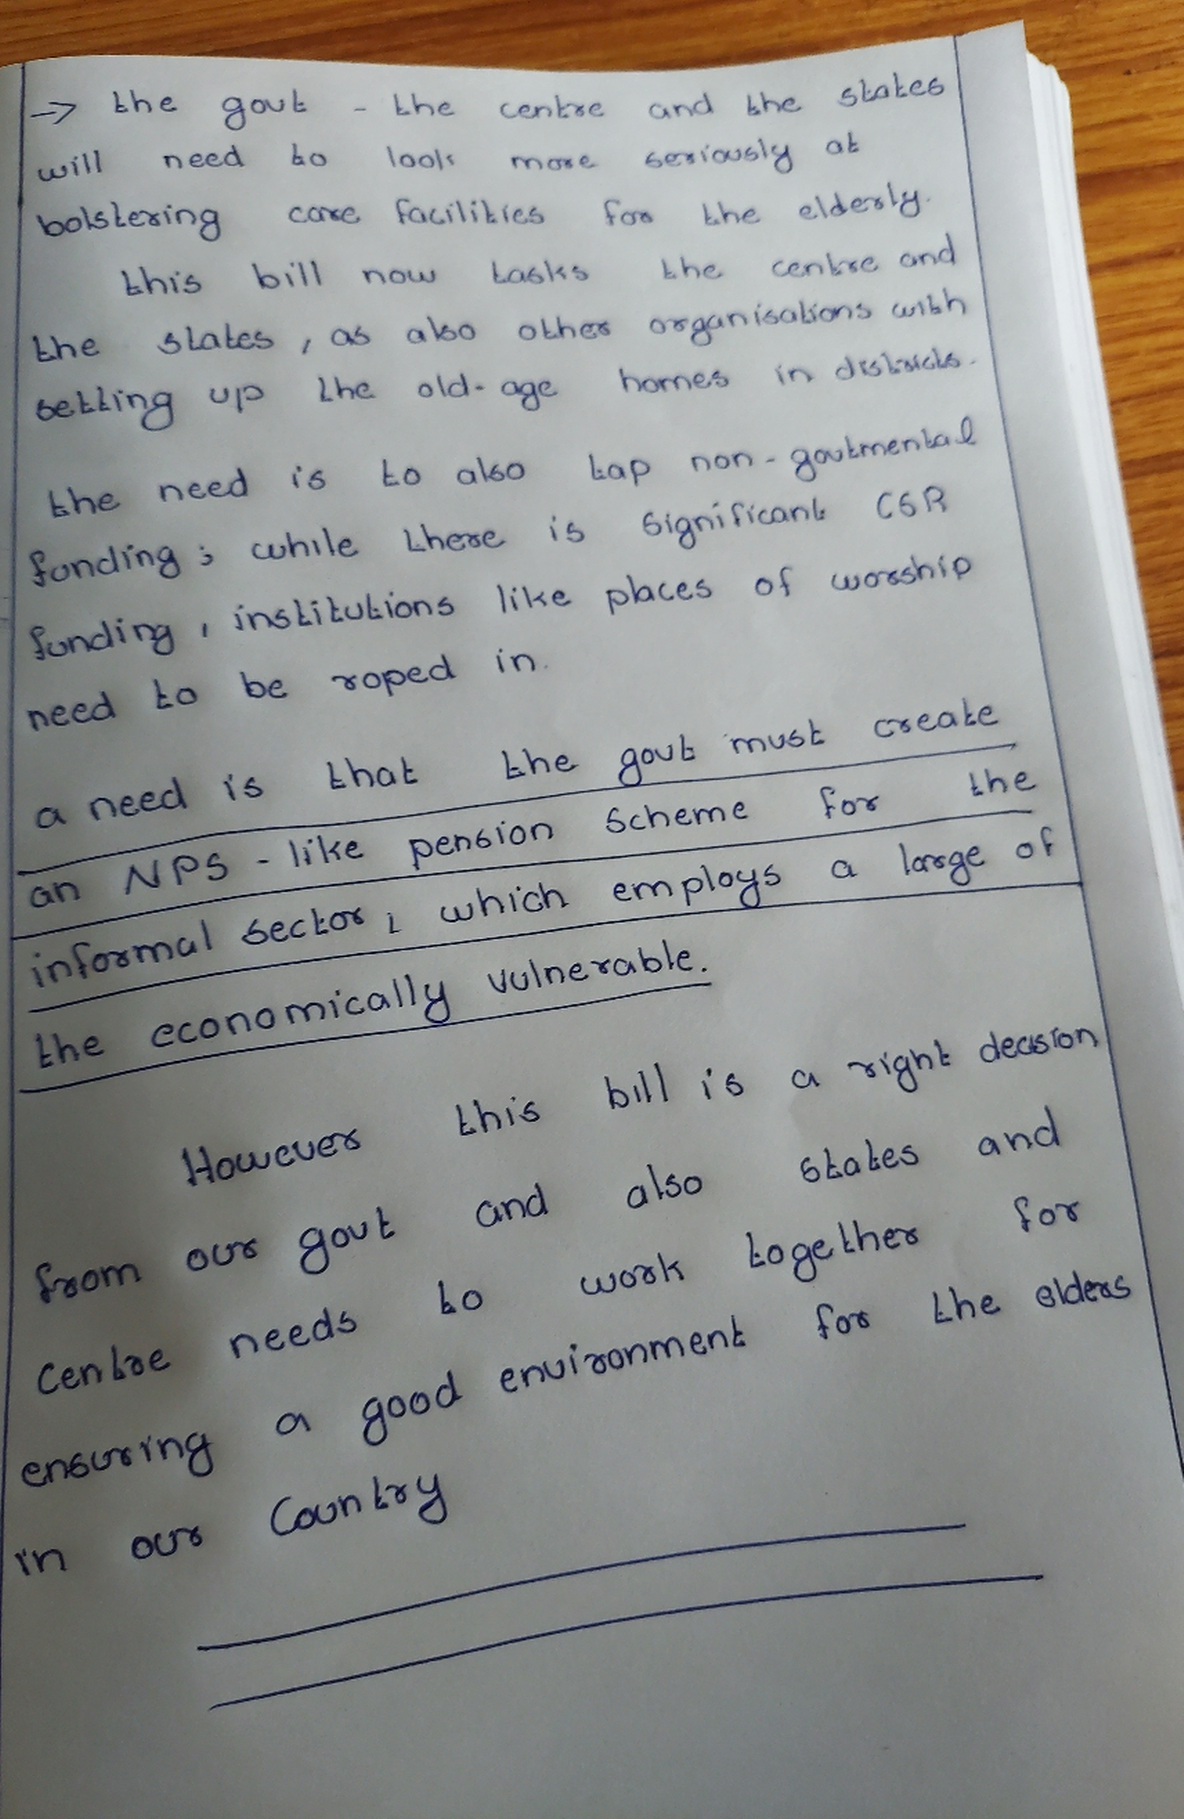 → the govt - the centre and the states
will need to look more seriously at
bolstering care facilities for the elderly.
this bill now tasks the centre and
the states, as also other organisations with
setting up the old-age homes in districts.
the need is to also tap non-govtmental
funding; while there is significant CSR
funding, institutions like places of worship
need to be roped in.
a need is that the govt must create
an NPS-like pension scheme for the
informal sector, which employs a large of
the economically vulnerable.
However this bill is a right decision
from our govt and also states and
centre needs to work together for
ensuring a good environment for the elders
in our Country